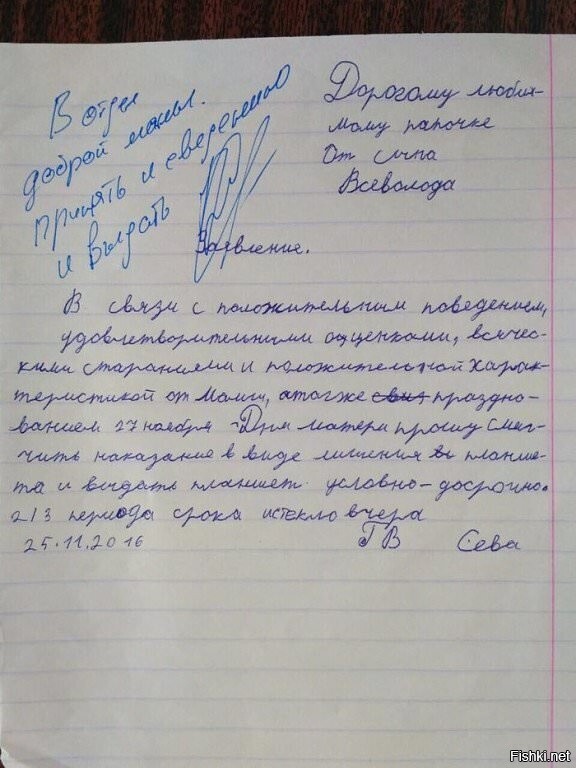 В отдел
доброй мамы.
принять к сведению
и выдать
Дорогому люби-
мому папочке
От сына
Всеволода
Заявление.
В связи с положительным поведением,
удовлетворительными оценками, всячес-
кими стараниями и положительной харак-
теристикой от Мамы, а также праздно-
ванием 27 ноября - Дня матери прошу смяг-
чить наказание в виде лишения планше-
та и выдать планшет условно-досрочно.
2/3 периода срока истекло вчера
25.11.2016 ГВ Сева
Fishki.net